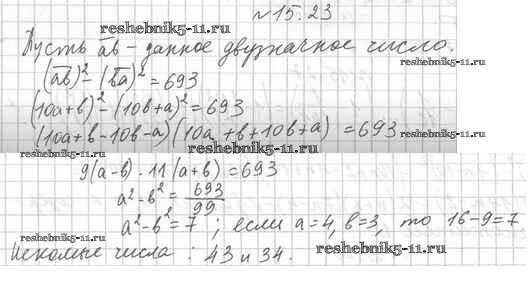 №15.23
reshebnik5-11.ru
Пусть a̅b̅ – данное двузначное число.
reshebnik5-11.ru
(a̅b̅)² – (b̅a̅)² = 693
(10a+b)² – (10b+a)² = 693
(10a+b-10b-a)(10a+b+10b+a) = 693
reshebnik5-11.ru
reshebnik5-11.ru
reshebnik5-11.ru
9(a-b)·11(a+b)=693
a²-b² = 693/99
a²-b²=7; если a=4, b=3, то 16-9=7.
reshebnik5-11.ru
Искомые числа: 43 и 34.
reshebnik5-11.ru